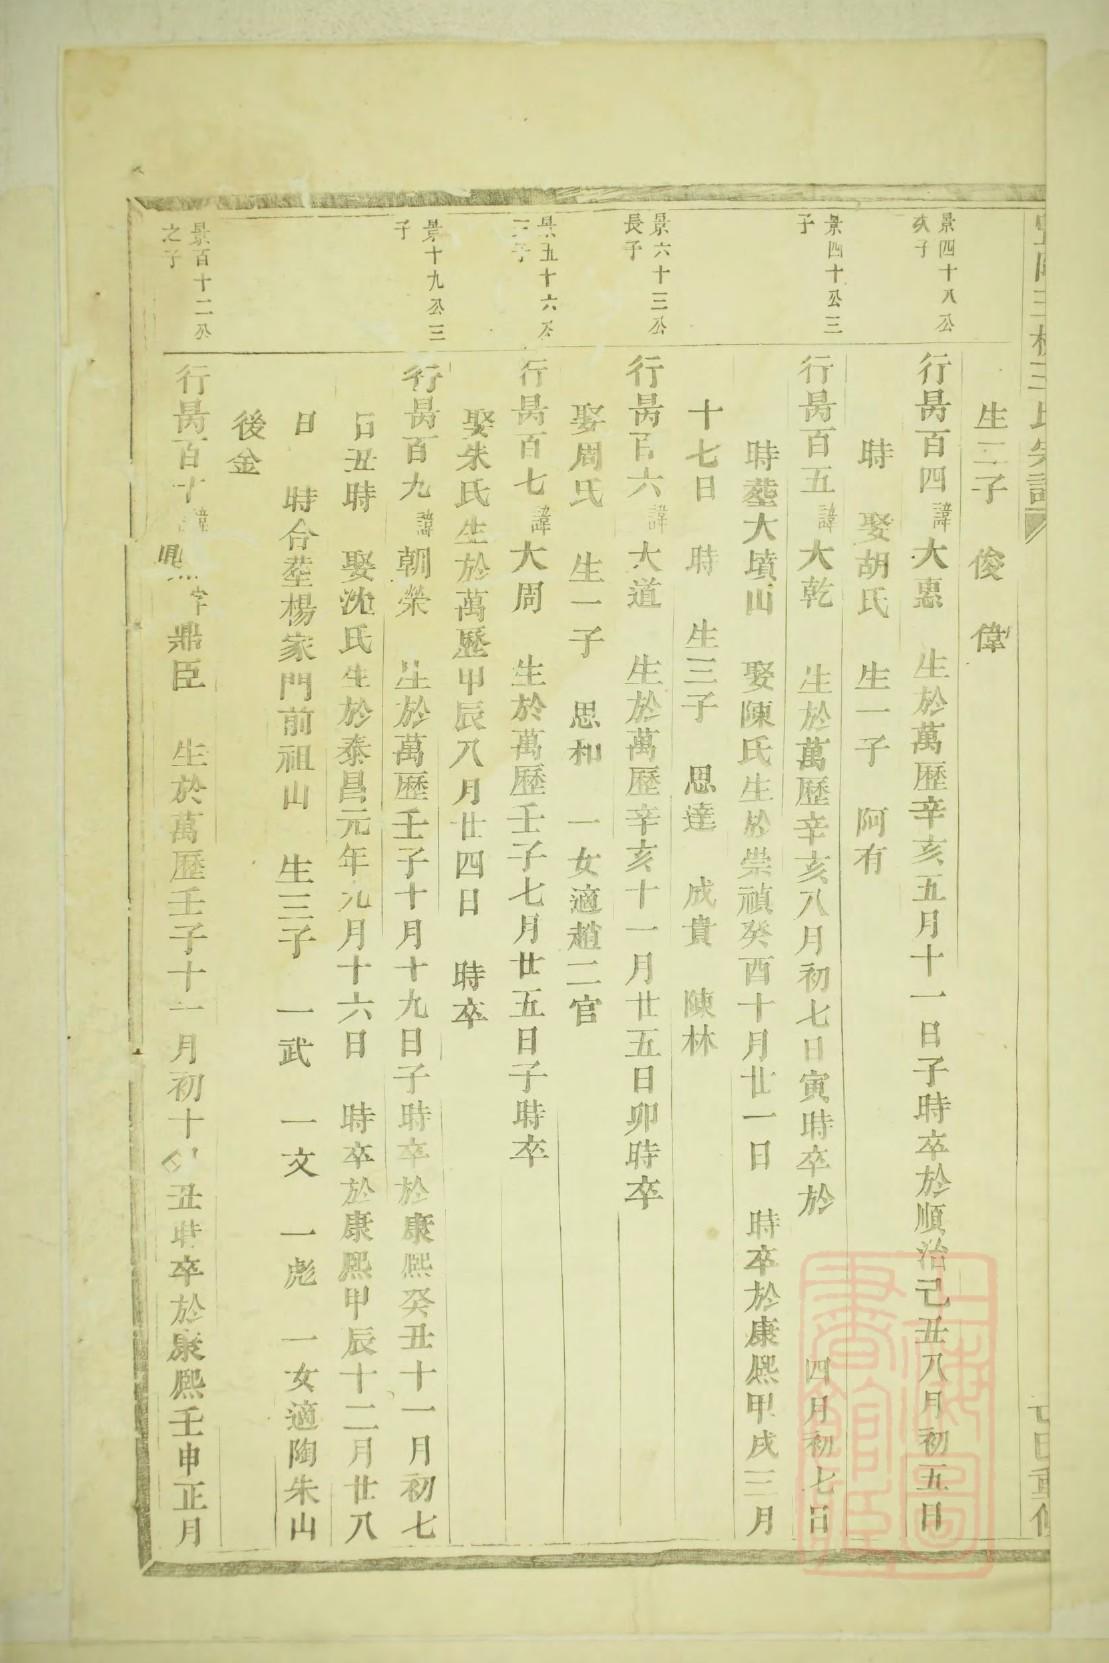 王氏宗譜
生二子 俊 偉
景四十八公
次子
行昺百四諱大惠 生於萬歷辛亥五月十一日子時卒於順治己丑八月初五日
時 娶胡氏 生一子 阿有
景四十公三
子
行昺百五諱大乾 生於萬歷辛亥八月初七日寅時卒於 四月初七日
時塟大墳山 娶陳氏生於崇禎癸酉十月廿一日 時卒於康熈甲戌三月
十七日 時 生三子 思達 成貴 陳林
景六十三公
長子
行昺百六諱大道 生於萬歷辛亥十一月廿五日卯時卒
娶周氏 生一子 思和 一女適趙二官
景五十六公
子
行昺百七諱大周 生於萬歷壬子七月廿五日子時卒
娶朱氏生於萬歷甲辰八月廿四日 時卒
景十九公三
子
行昺百九諱朝榮 生於萬歷壬子十月十九日子時卒於康熈癸丑十一月初七
日丑時 娶沈氏生於泰昌元年九月十六日 時卒於康熈甲辰十二月廿八
日 時合塟楊家門前祖山 生三子 一武 一文 一彪 一女適陶朱山
後金
景百十二公
之子
行昺百十諱鼎 字鼎臣 生於萬歷壬子十一月初十 丑時卒於康熈壬申正月
上海圖書館藏